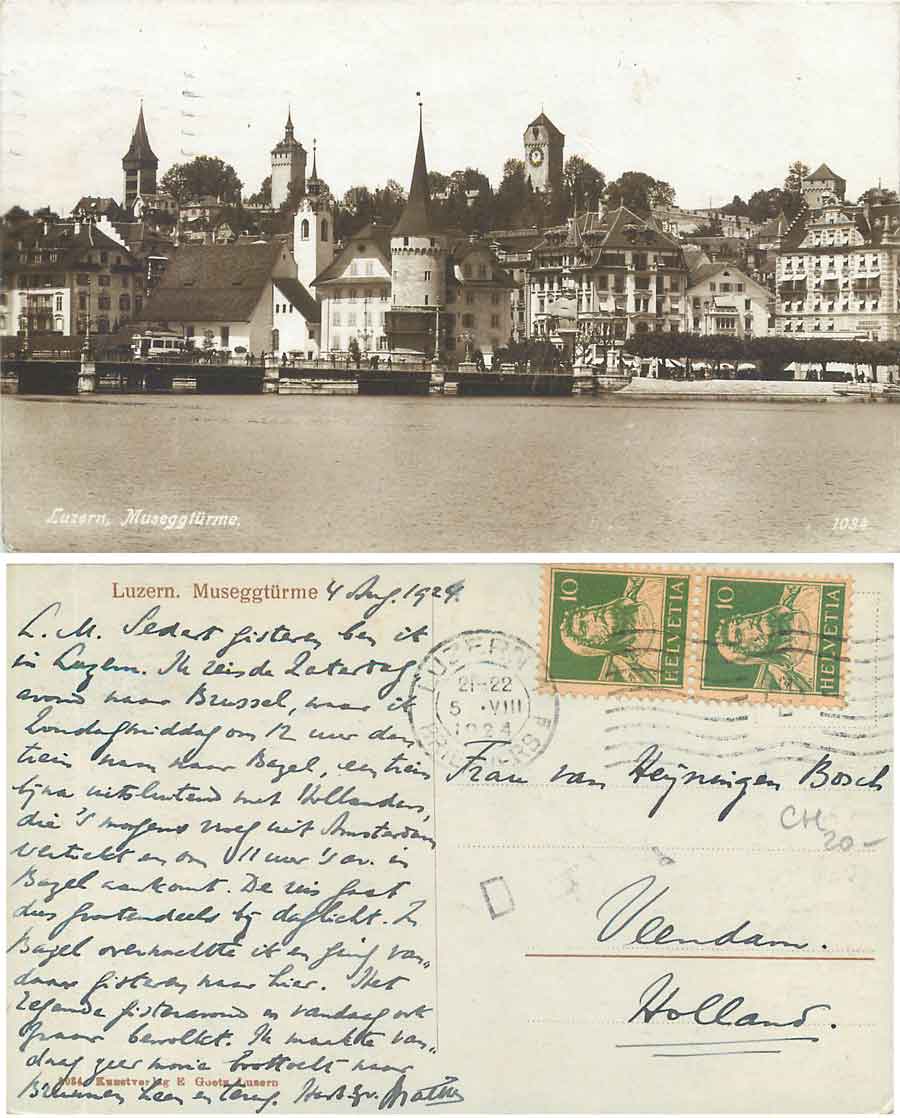 Luzern, Museggtürme.
1034
Luzern. Museggtürme 4 Aug. 1924.
L. M. Sedert gisteren ben ik
in Luzern. Ik reisde Zaterdag
avond naar Brussel, waar ik
Zondagmiddag om 12 uur den
trein nam naar Bazel, een trein
bijna uitsluitend met Hollanders,
die 's morgens vroeg uit Amsterdam
vertrekt en om 11 uur 's av. in
Bazel aankomt. De reis gaat
dus grootendeels bij daglicht. In
Bazel overnachtte ik en ging van
daar gisteren naar hier. Het
regende gisteravond en vandaag ook
zwaar bewolkt. Ik maakte van-
daag zeer mooie boottocht naar
Brunnen heen en terug. Hart. gr.
1034 Kunstverlag E. Goetz Luzern
LUZERN
21-22
5. VIII
1924
BRIEFVERS
10 HELVETIA
10 HELVETIA
Frau van Heyningen Bosch
CH
20-
Veendam.
Holland.